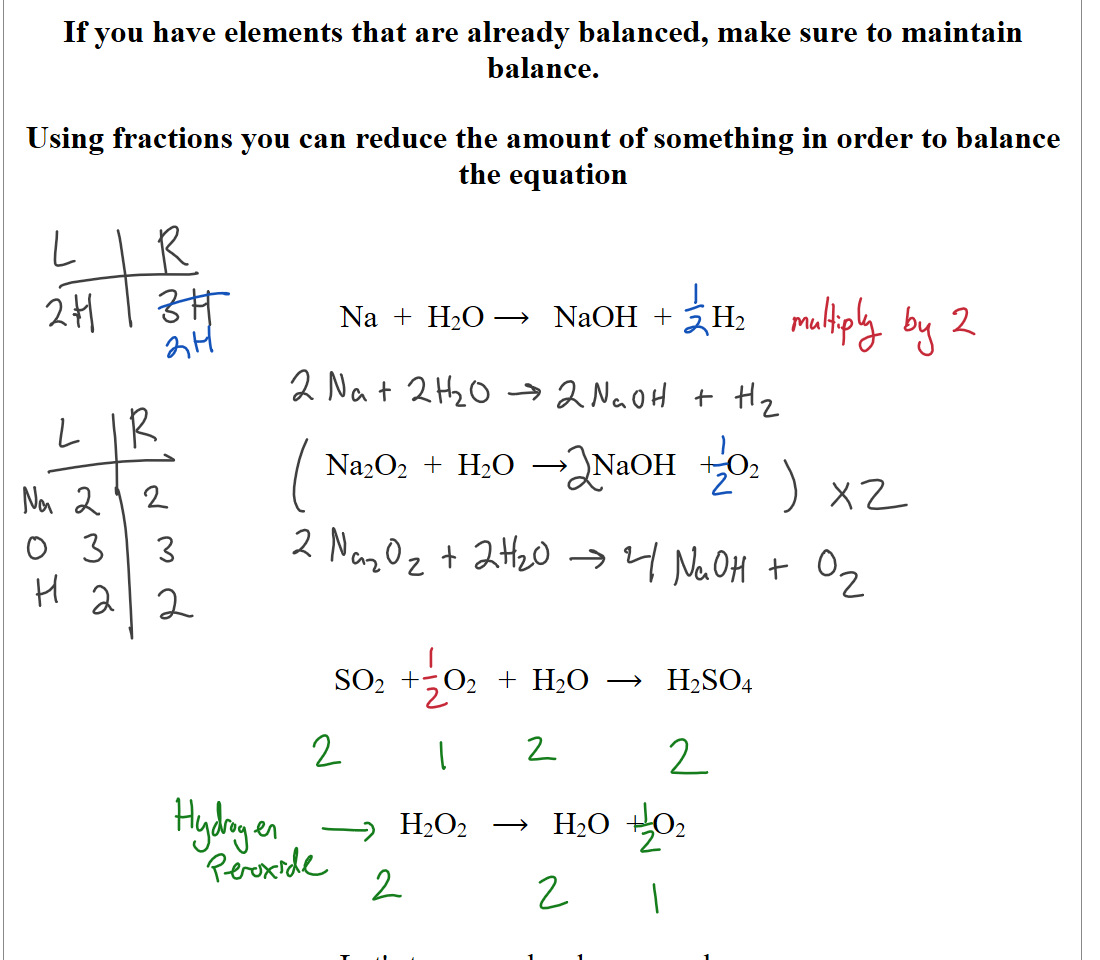 If you have elements that are already balanced, make sure to maintain
balance.
Using fractions you can reduce the amount of something in order to balance
the equation
L | R
2H | 3H
2H
Na + H₂O → NaOH + ½ H₂ multiply by 2
2 Na + 2 H₂O → 2 NaOH + H₂
L | R
Na 2 | 2
O 3 | 3
H 2 | 2
( Na₂O₂ + H₂O → 2 NaOH + ½ O₂ ) x 2
2 Na₂O₂ + 2 H₂O → 4 NaOH + O₂
SO₂ + ½ O₂ + H₂O → H₂SO₄
2 1 2 2
Hydrogen → H₂O₂ → H₂O + ½ O₂
Peroxide
2 2 1